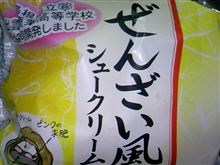 高等学校
開発しました
ぜんざい風
シュークリーム
ピンクの
求肥